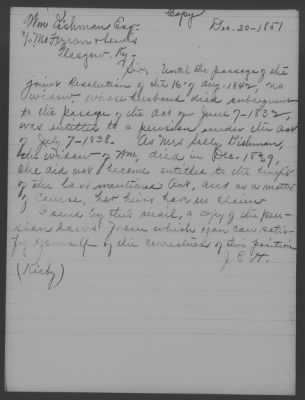 Copy
Wm Dishman Esq. Dec. 20-1851
c/o McFerran & Lewis
Glasgow, Ky.
Sir, Until the passage of the
joint Resolution of the 16th of Aug. 1842, no
widow whose Husband died subsequent
to the passage of the Act of June 7-1832,
was entitled to a pension under the act
of July 7-1838. As Mrs Sally Dishman,
the widow of Wm, died in Dec. 1839,
she did not become entitled to the benefit
of the last mentioned Act, and as a matter
of course, her heirs had no claim
I send by this mail, a copy of the pen-
sion laws from which you can satis-
fy yourself of the correctness of this position
J. E. H.
(Kirby)